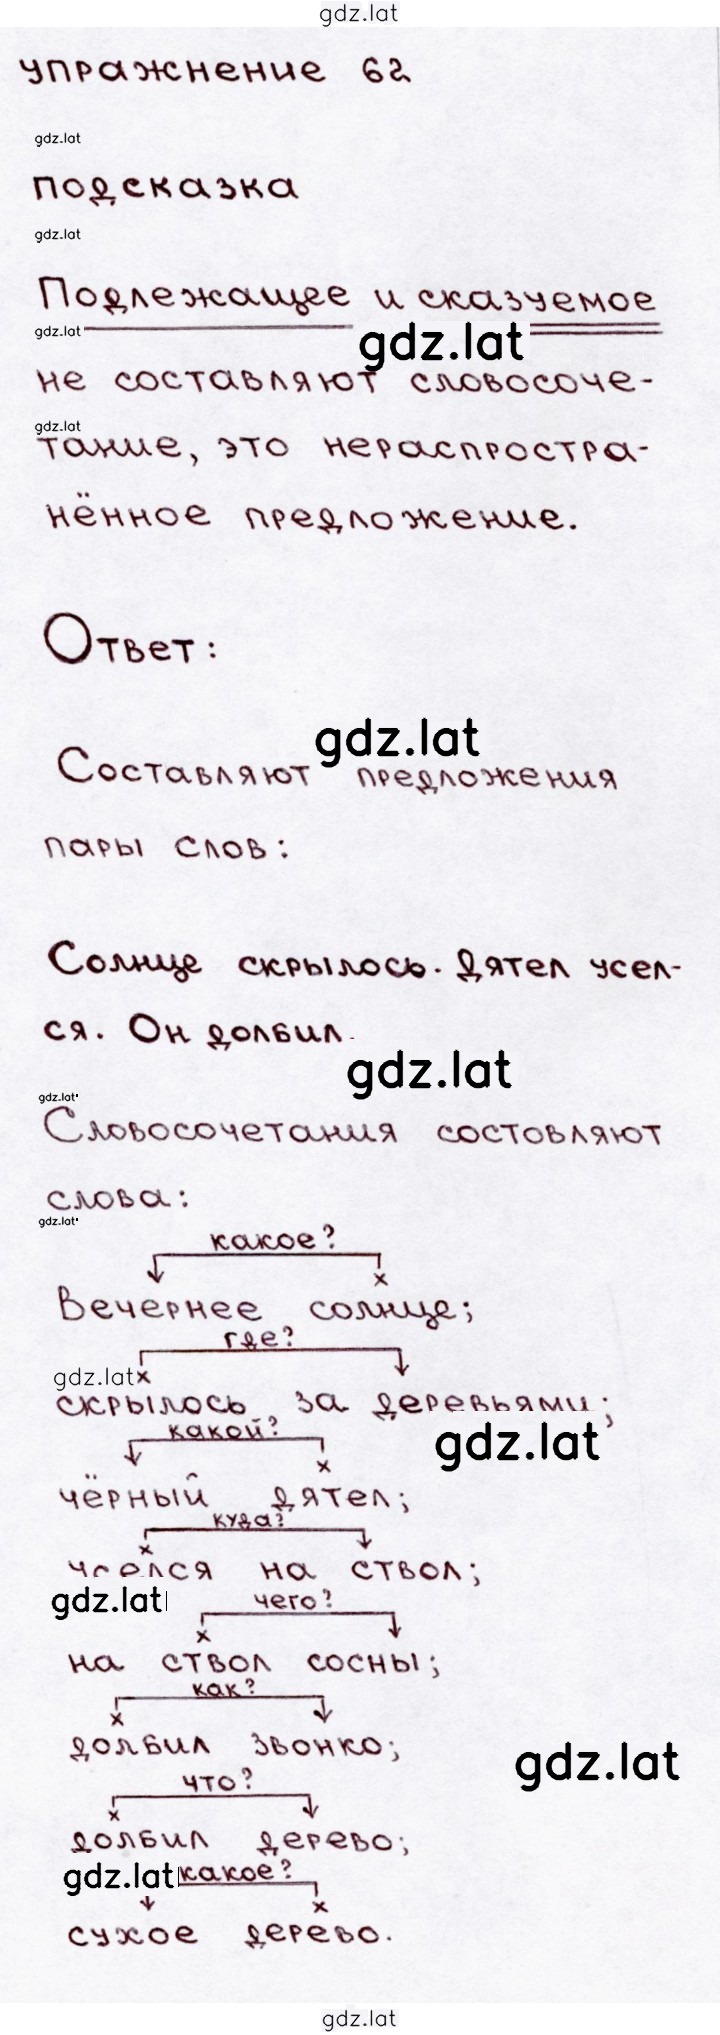 gdz.lat
упражнение 62
gdz.lat
подсказка
gdz.lat
Подлежащее и сказуемое
gdz.lat
gdz.lat
не составляют словосоче-
gdz.lat
тание, это нераспростра-
нённое предложение.
Ответ:
gdz.lat
Составляют предложения
пары слов:
Солнце скрылось. Дятел усел-
ся. Он долбил.
gdz.lat
gdz.lat
Словосочетания состовляют
слова:
gdz.lat
какое?
х
Вечернее солнце;
где?
gdz.lat х
скрылось за деревьями;
какой?
gdz.lat
х
чёрный дятел;
куда?
х
уселся на ствол;
gdz.lat
чего?
х
на ствол сосны;
как?
х
долбил звонко;
gdz.lat
что?
х
долбил дерево;
gdz.lat
какое?
х
сухое дерево.
gdz.lat